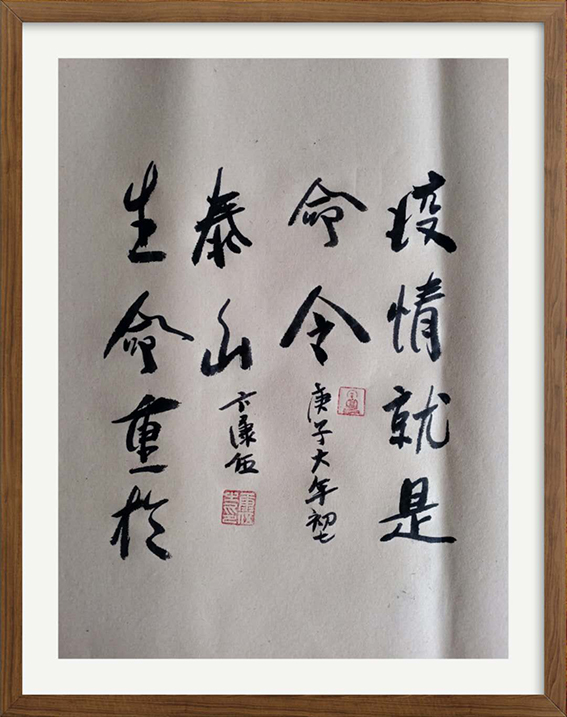 疫情就是
命令
生命重於
泰山
庚子大年初七